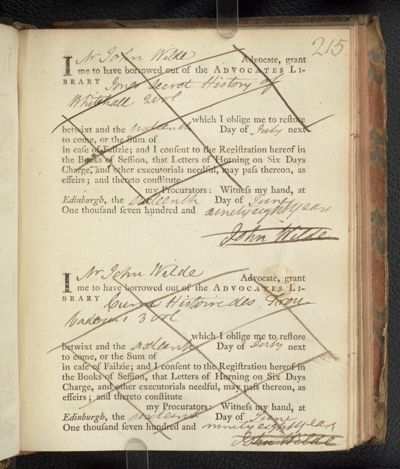 215
I Mr John Wilde Advocate, grant
me to have borrowed out of the ADVOCATES LI-
BRARY Jones Secret History of
Whitehall 2 vol
which I oblige me to restore
betwixt and the Day of July next
to come, or the Sum of
in case of Failzie; and I consent to the Registration hereof in
the Books of Session, that Letters of Horning on Six Days
Charge, and other executorials needful, may pass thereon, as
effeirs; and thereto constitute
my Procurators: Witness my hand, at
Edinburgh, the Day of June
One thousand seven hundred and ninety eight years
John Wilde
I Mr John Wilde Advocate, grant
me to have borrowed out of the ADVOCATES LI-
BRARY Histoire des Trou
badours 3 vol
which I oblige me to restore
betwixt and the Day of July next
to come, or the Sum of
in case of Failzie; and I consent to the Registration hereof in
the Books of Session, that Letters of Horning on Six Days
Charge, and other executorials needful, may pass thereon, as
effeirs; and thereto constitute
my Procurators: Witness my hand, at
Edinburgh, the Day of June
One thousand seven hundred and ninety eight years
John Wilde